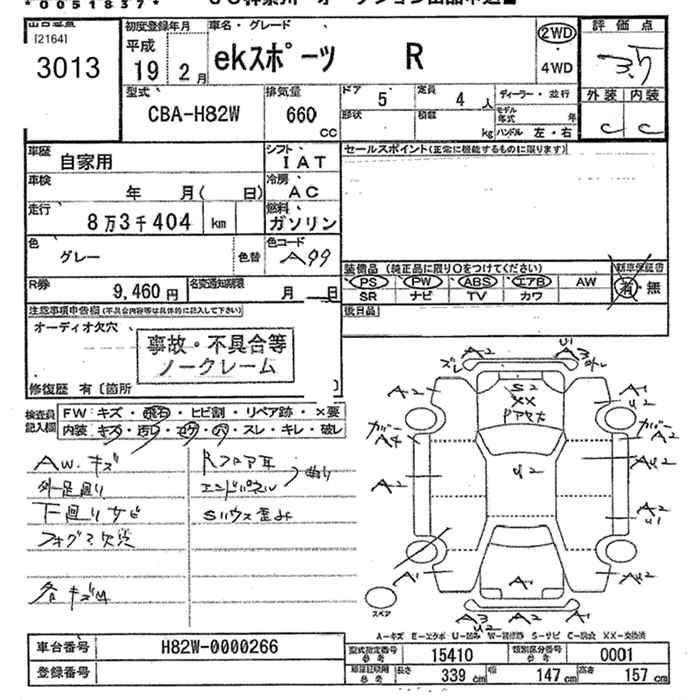 *0051837*
[2164]
3013
初度登録年月
平成
19年 2月
車名・グレード
ekスポーツ R
2WD
4WD
評価点
3.5
外装 内装
C C
型式
CBA-H82W
排気量
660 cc
ドア
5
定員
4人
ディーラー・並行
形状
積載
kg
モデル年式 年
ハンドル 左・右
車歴
自家用
シフト
IAT
セールスポイント(正常に機能するものに限ります)
車検
年 月( 日)
冷房
AC
走行
8万3千404 km
燃料
ガソリン
色
グレー
色替
色コード
A99
装備品 (純正品に限り○をつけてください)
新車保証書
PS PW ABS エアB AW
有・無
SR ナビ TV カワ
R券
9,460円
名変通知期限
月 日
後日品
注意事項申告欄(不具合内容等は具体的に記入して下さい)
オーディオ欠穴
事故・不具合等
ノークレーム
修復歴 有〔箇所
検査員記入欄
FW: キズ・飛石・ヒビ割・リペア跡・×要
内装: キズ・汚レ・コゲ・穴・スレ・キレ・破レ
AW. キズ
下廻りサビ
各キズM
Rフロア耳
エンドパネル
曲り
A2 U1 A3
ズレ
A2
S2
XX
A1
U2
ガバー
A4
ガバー
A2
U2
AU2
A2
A2
U1
A1
A1
A2
スペア
A3 A2 A1
U2
A-キズ E-エクボ U-凹み W-補修跡 S-サビ C-腐食 XX-交換済
車台番号
H82W-0000266
型式指定番号 参考
15410
類別区分番号 参考
0001
登録番号
長さ
339cm
幅
147cm
高さ
157cm